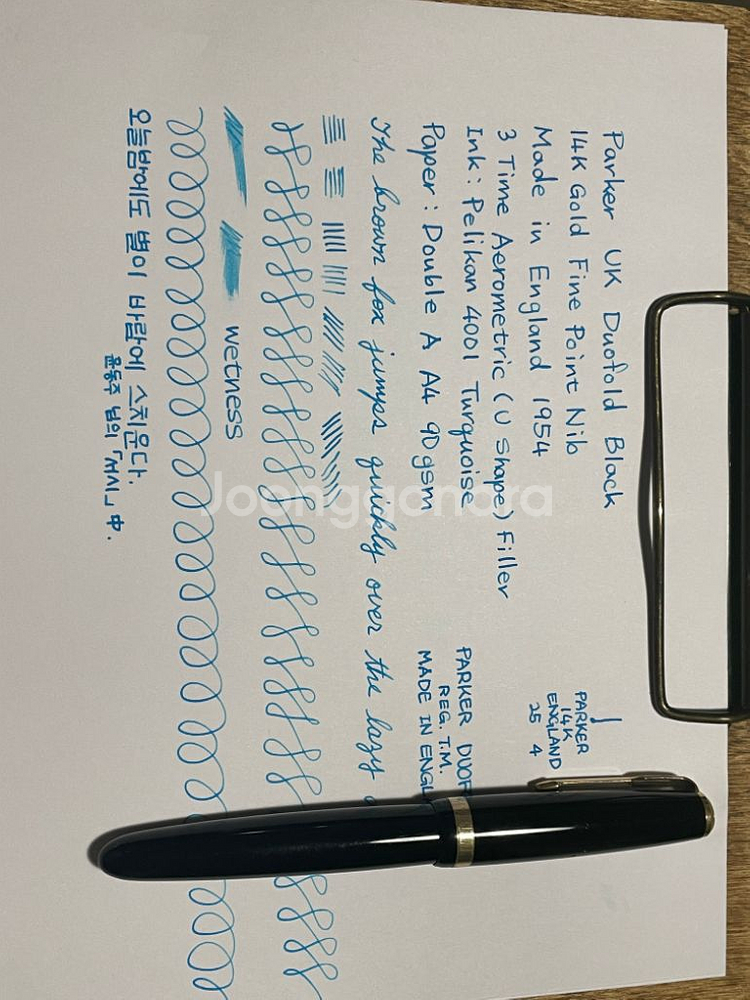 Parker UK Duofold Black
14K Gold Fine Point Nib
Made in England 1954
3 Time Aerometric (U shape) Filler
Ink : Pelikan 4001 Turquoise
Paper : Double A A4 90gsm
PARKER
14K
ENGLAND
25 4
PARKER DUOF
REG. T.M.
MADE IN ENGL
The brown fox jumps quickly over the lazy
wetness
오늘밤에도 별이 바람에 스치운다.
윤동주 님의 「서시」 中.
Joonggonara